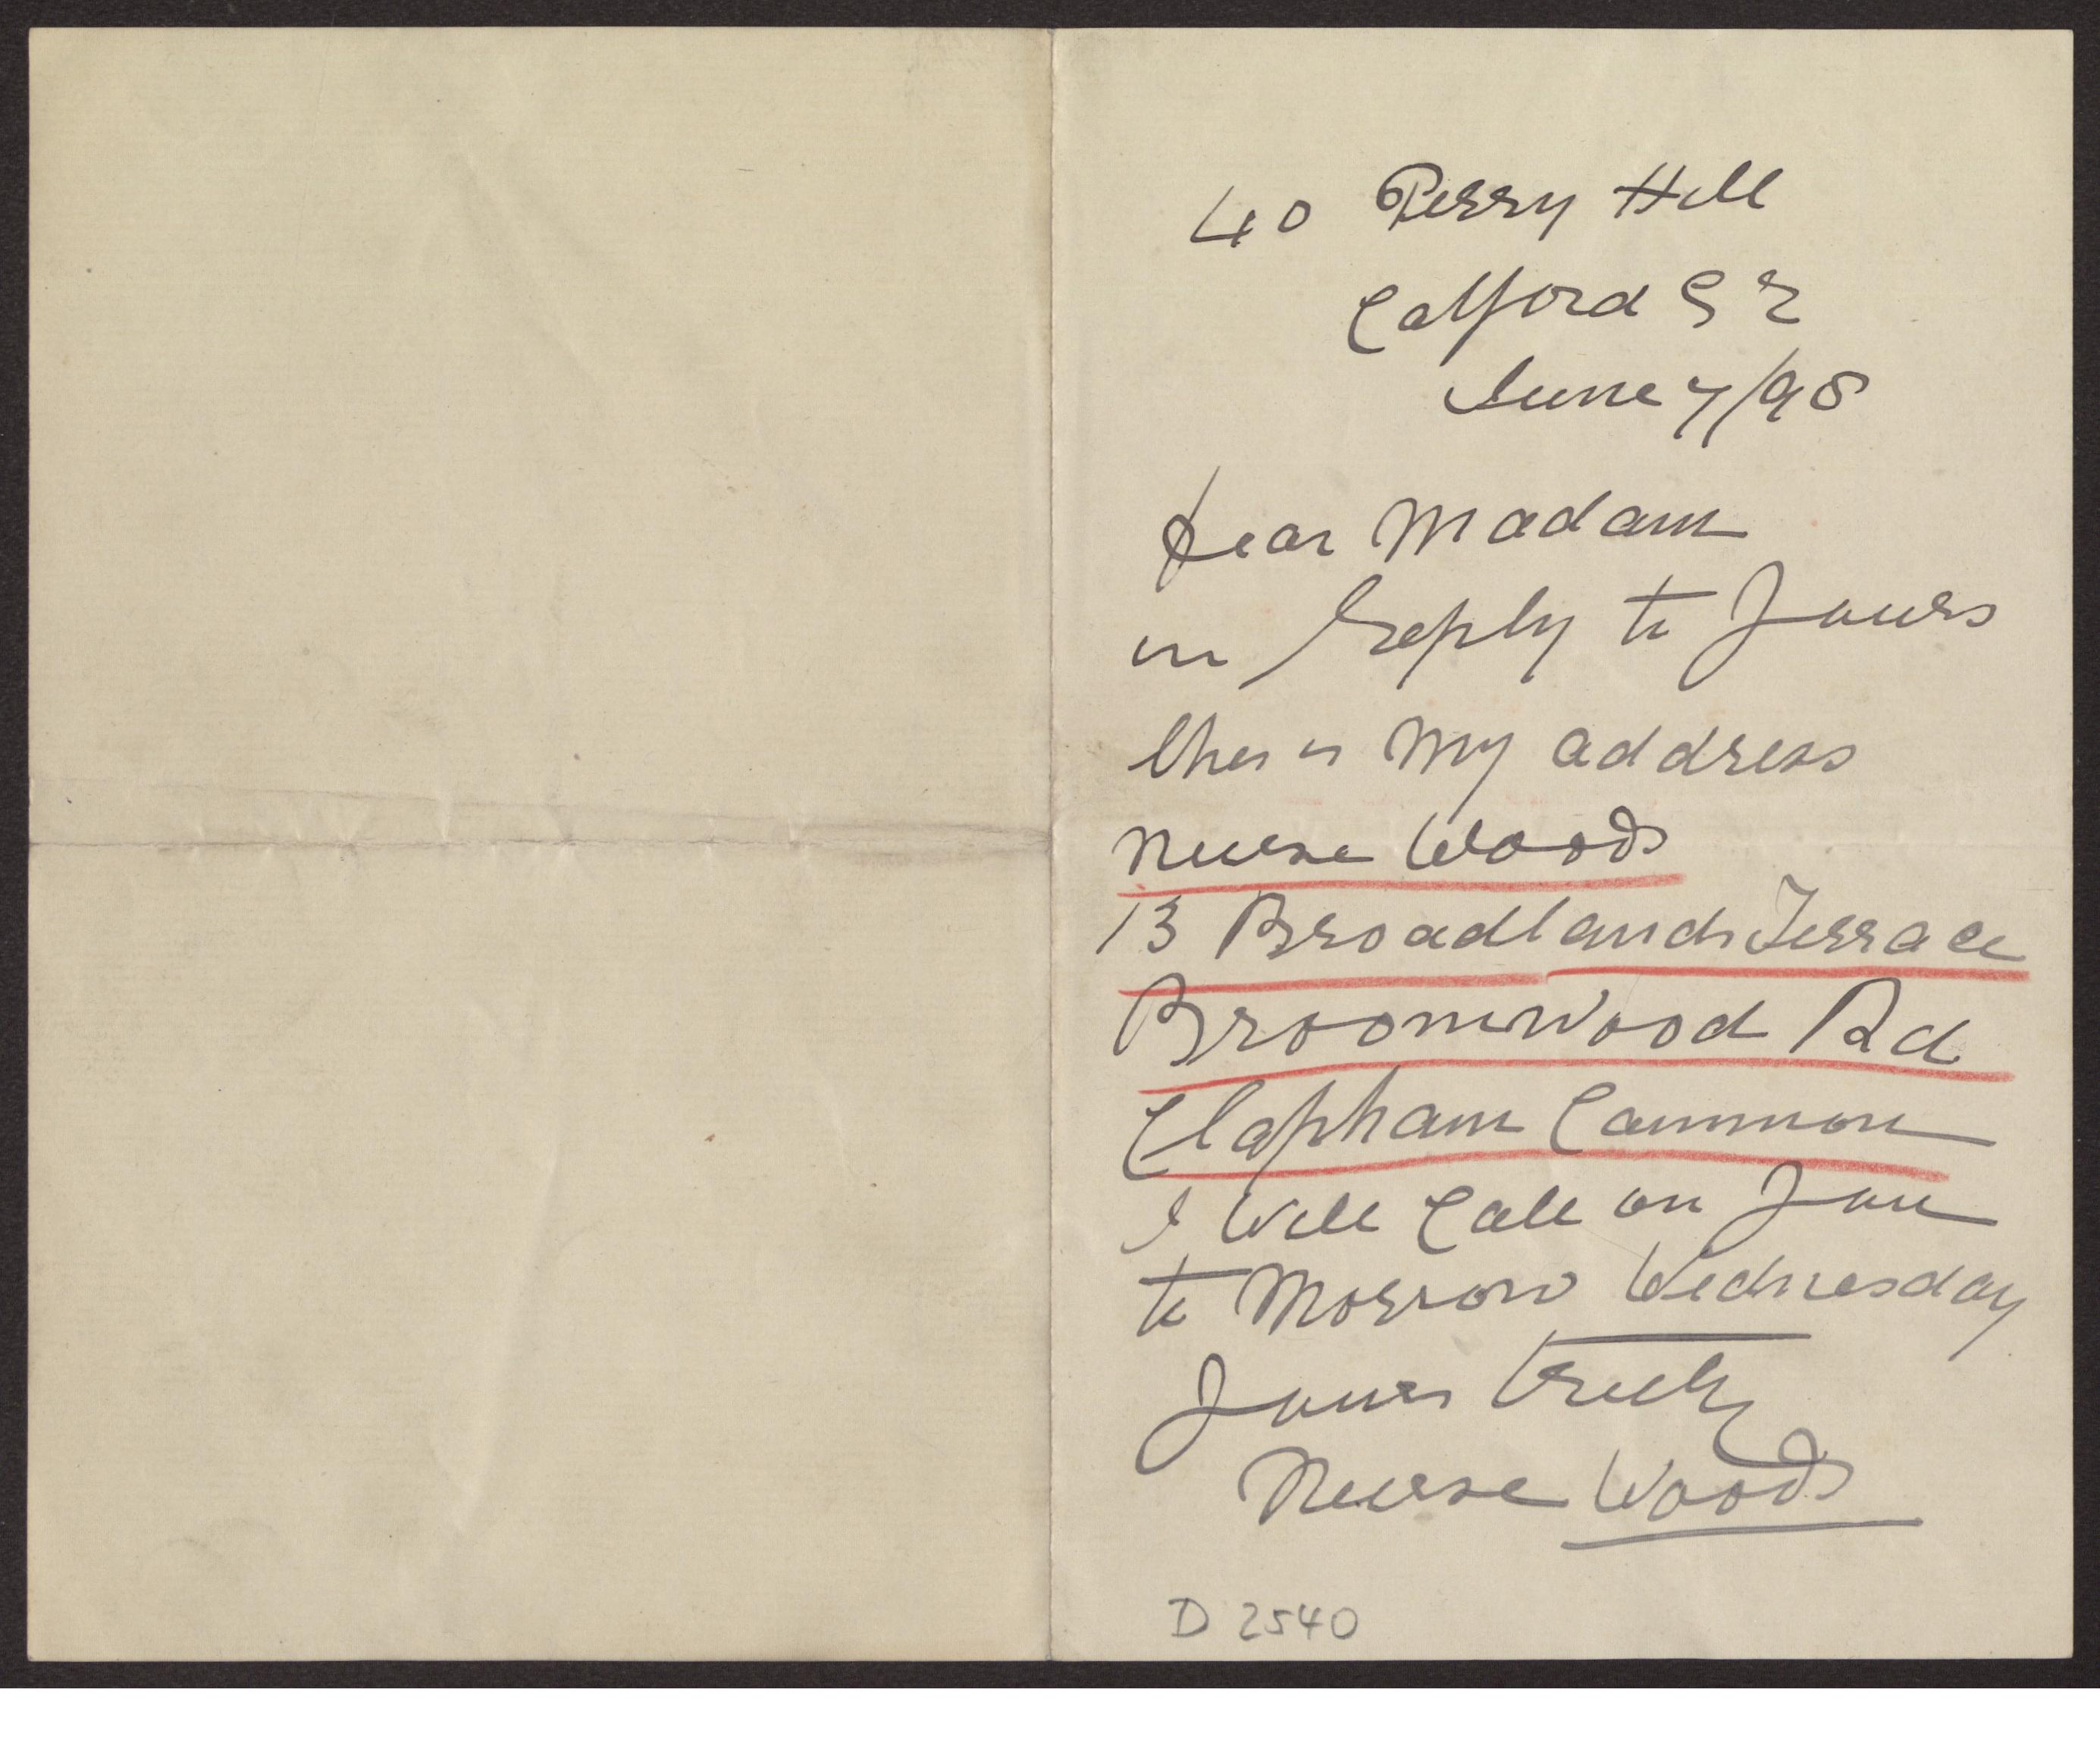 40 Perry Hill
Catford S E
June 7/98
Dear Madam
in Reply to Yours
this is My address
Nurse Woods
13 Broadlands Terrace
Broomwood Rd
Clapham Common
I Will Call on You
to Morrow Wednesday
Yours Truly
Nurse Woods
D 2540